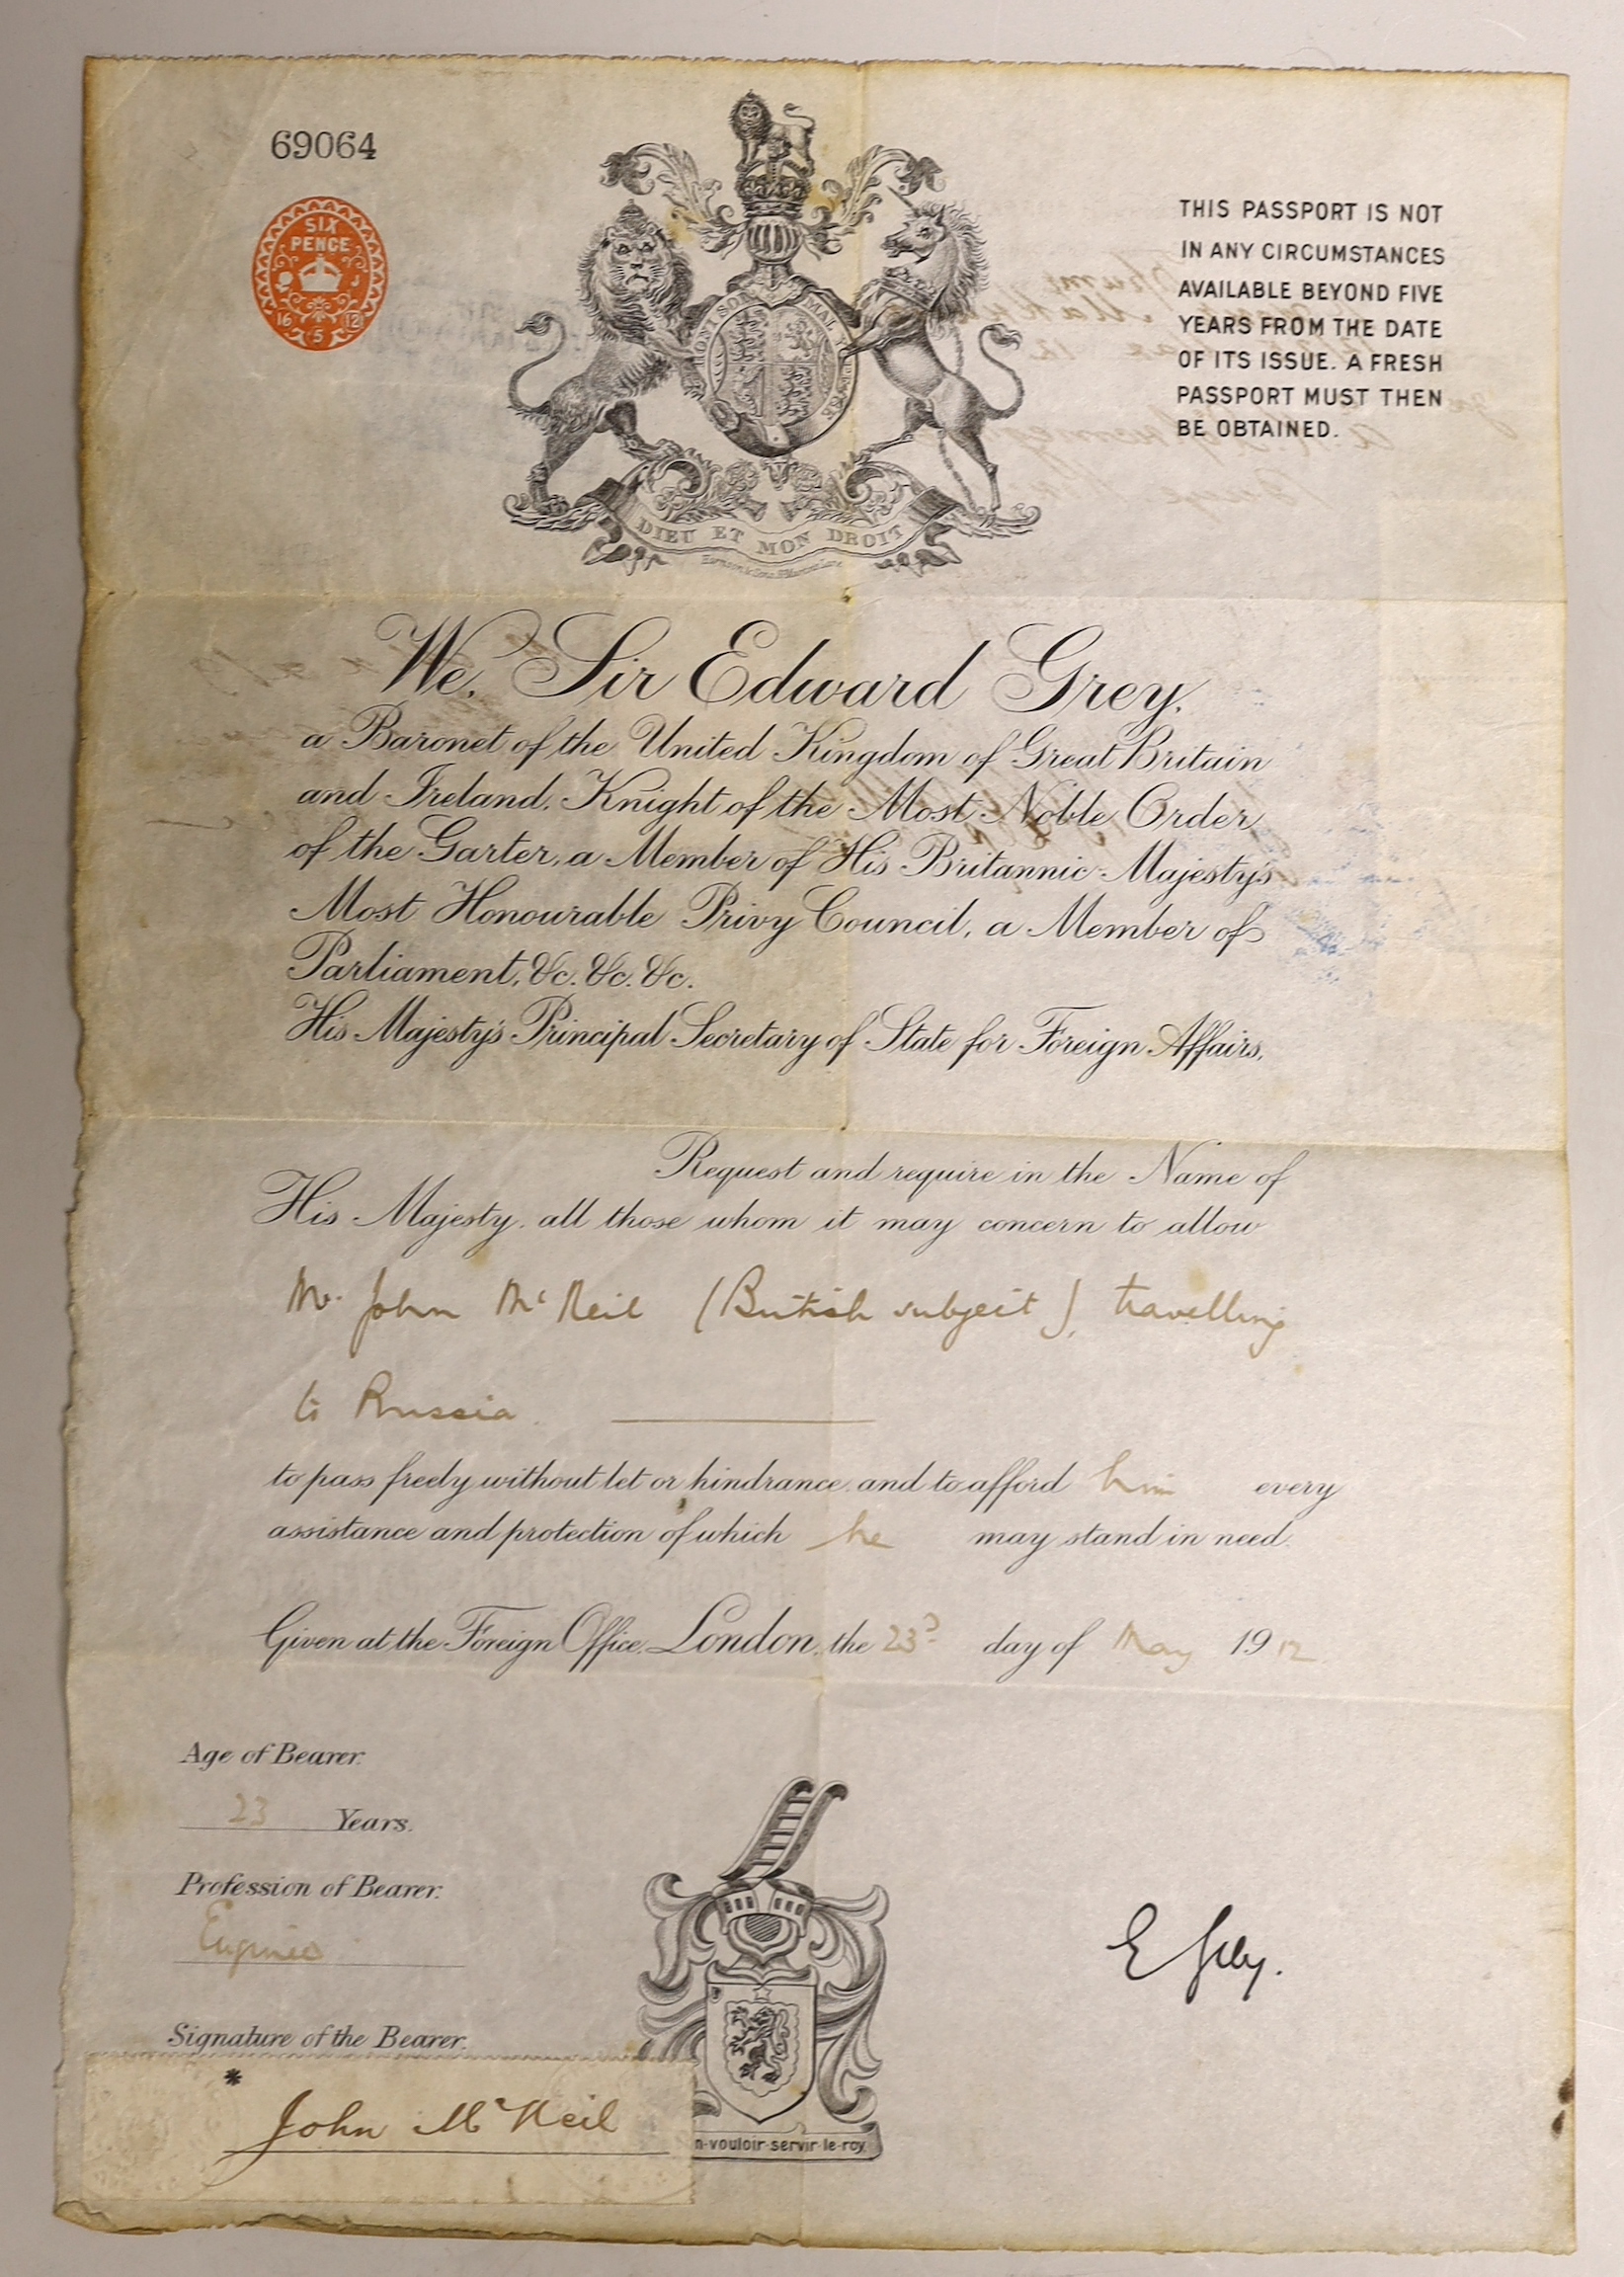 69064
SIX
PENCE
16 12
5
THIS PASSPORT IS NOT
IN ANY CIRCUMSTANCES
AVAILABLE BEYOND FIVE
YEARS FROM THE DATE
OF ITS ISSUE. A FRESH
PASSPORT MUST THEN
BE OBTAINED.
DIEU ET MON DROIT
We, Sir Edward Grey,
a Baronet of the United Kingdom of Great Britain
and Ireland, Knight of the Most Noble Order
of the Garter, a Member of His Britannic Majesty's
Most Honourable Privy Council, a Member of
Parliament, &c. &c. &c.
His Majesty's Principal Secretary of State for Foreign Affairs,
Request and require in the Name of
His Majesty, all those whom it may concern to allow
Mr. John McNeil (British subject), travelling
to Russia.
to pass freely without let or hindrance, and to afford him every
assistance and protection of which he may stand in need.
Given at the Foreign Office, London, the 23d day of May 1912
Age of Bearer.
23 Years.
Profession of Bearer.
Engineer
Signature of the Bearer.
* John McNeil
n·vouloir·servir·le·roy
E Grey.